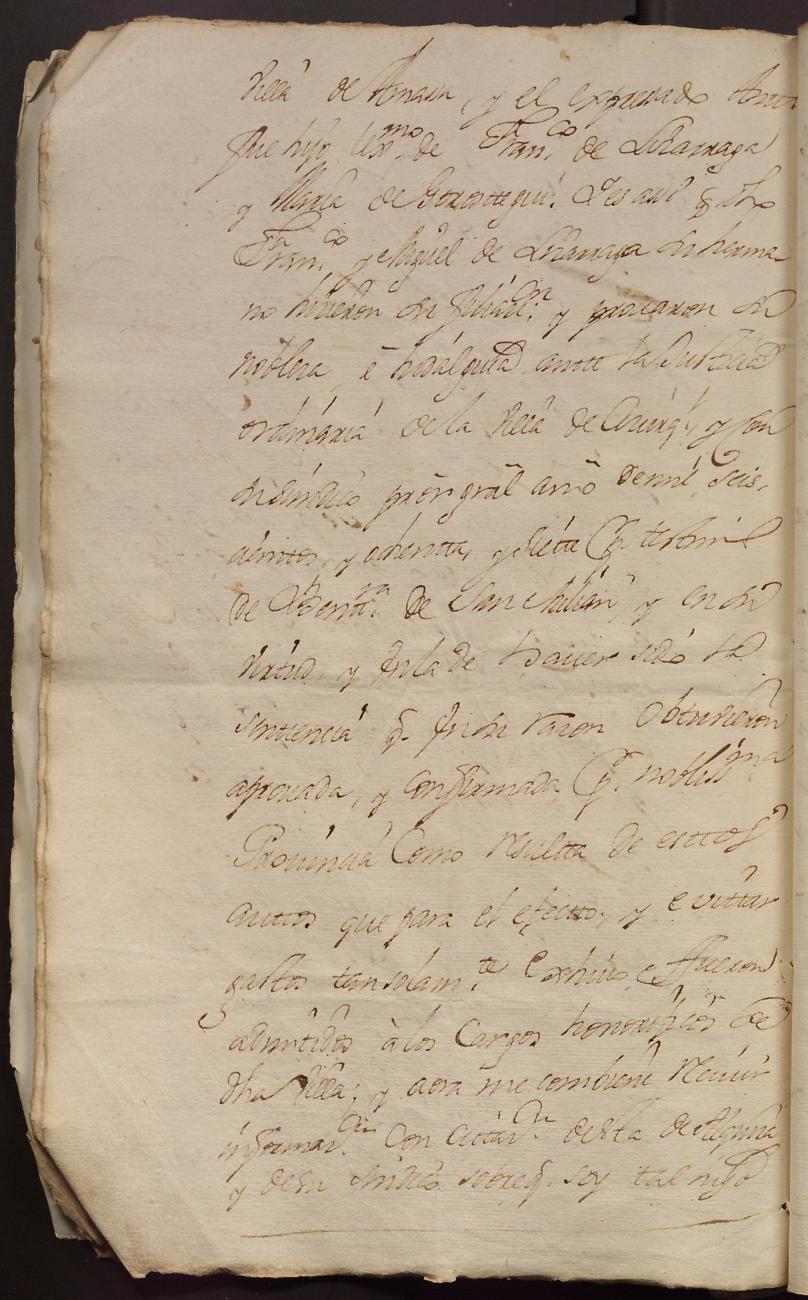 Villa de Amasa, y el expresado Anto
fue hijo lex.mo de Fran.co de Lizarraga
y Maria de Gorostegui. Y es asi q dho
Fran.co y Miguel de Lizarraga su herma
no hizieron su filiaz.on y provaron su
nobleza, e hidalguia ante la Justicia
ordinaria de la villa de y con
su sindico prōr grāl año de mil seis
cientos, y ochenta, y siete p. testim.
de de San Milian, y en su
virtud, y en la de haver sido la
sentencia q. en su razon obtubieron
aprovada, y confirmada p. nobliss.ma
Provincia como resulta de estos
auttos que para el efecto, y evittar
gastos tansolam.te exhivo, e fueron
admitidos à los cargos honorificos de
dha villa; y aora me combiene recivir
informaz.on con citaz.on desta de
y de su sindico sobre q. soy tal hijo